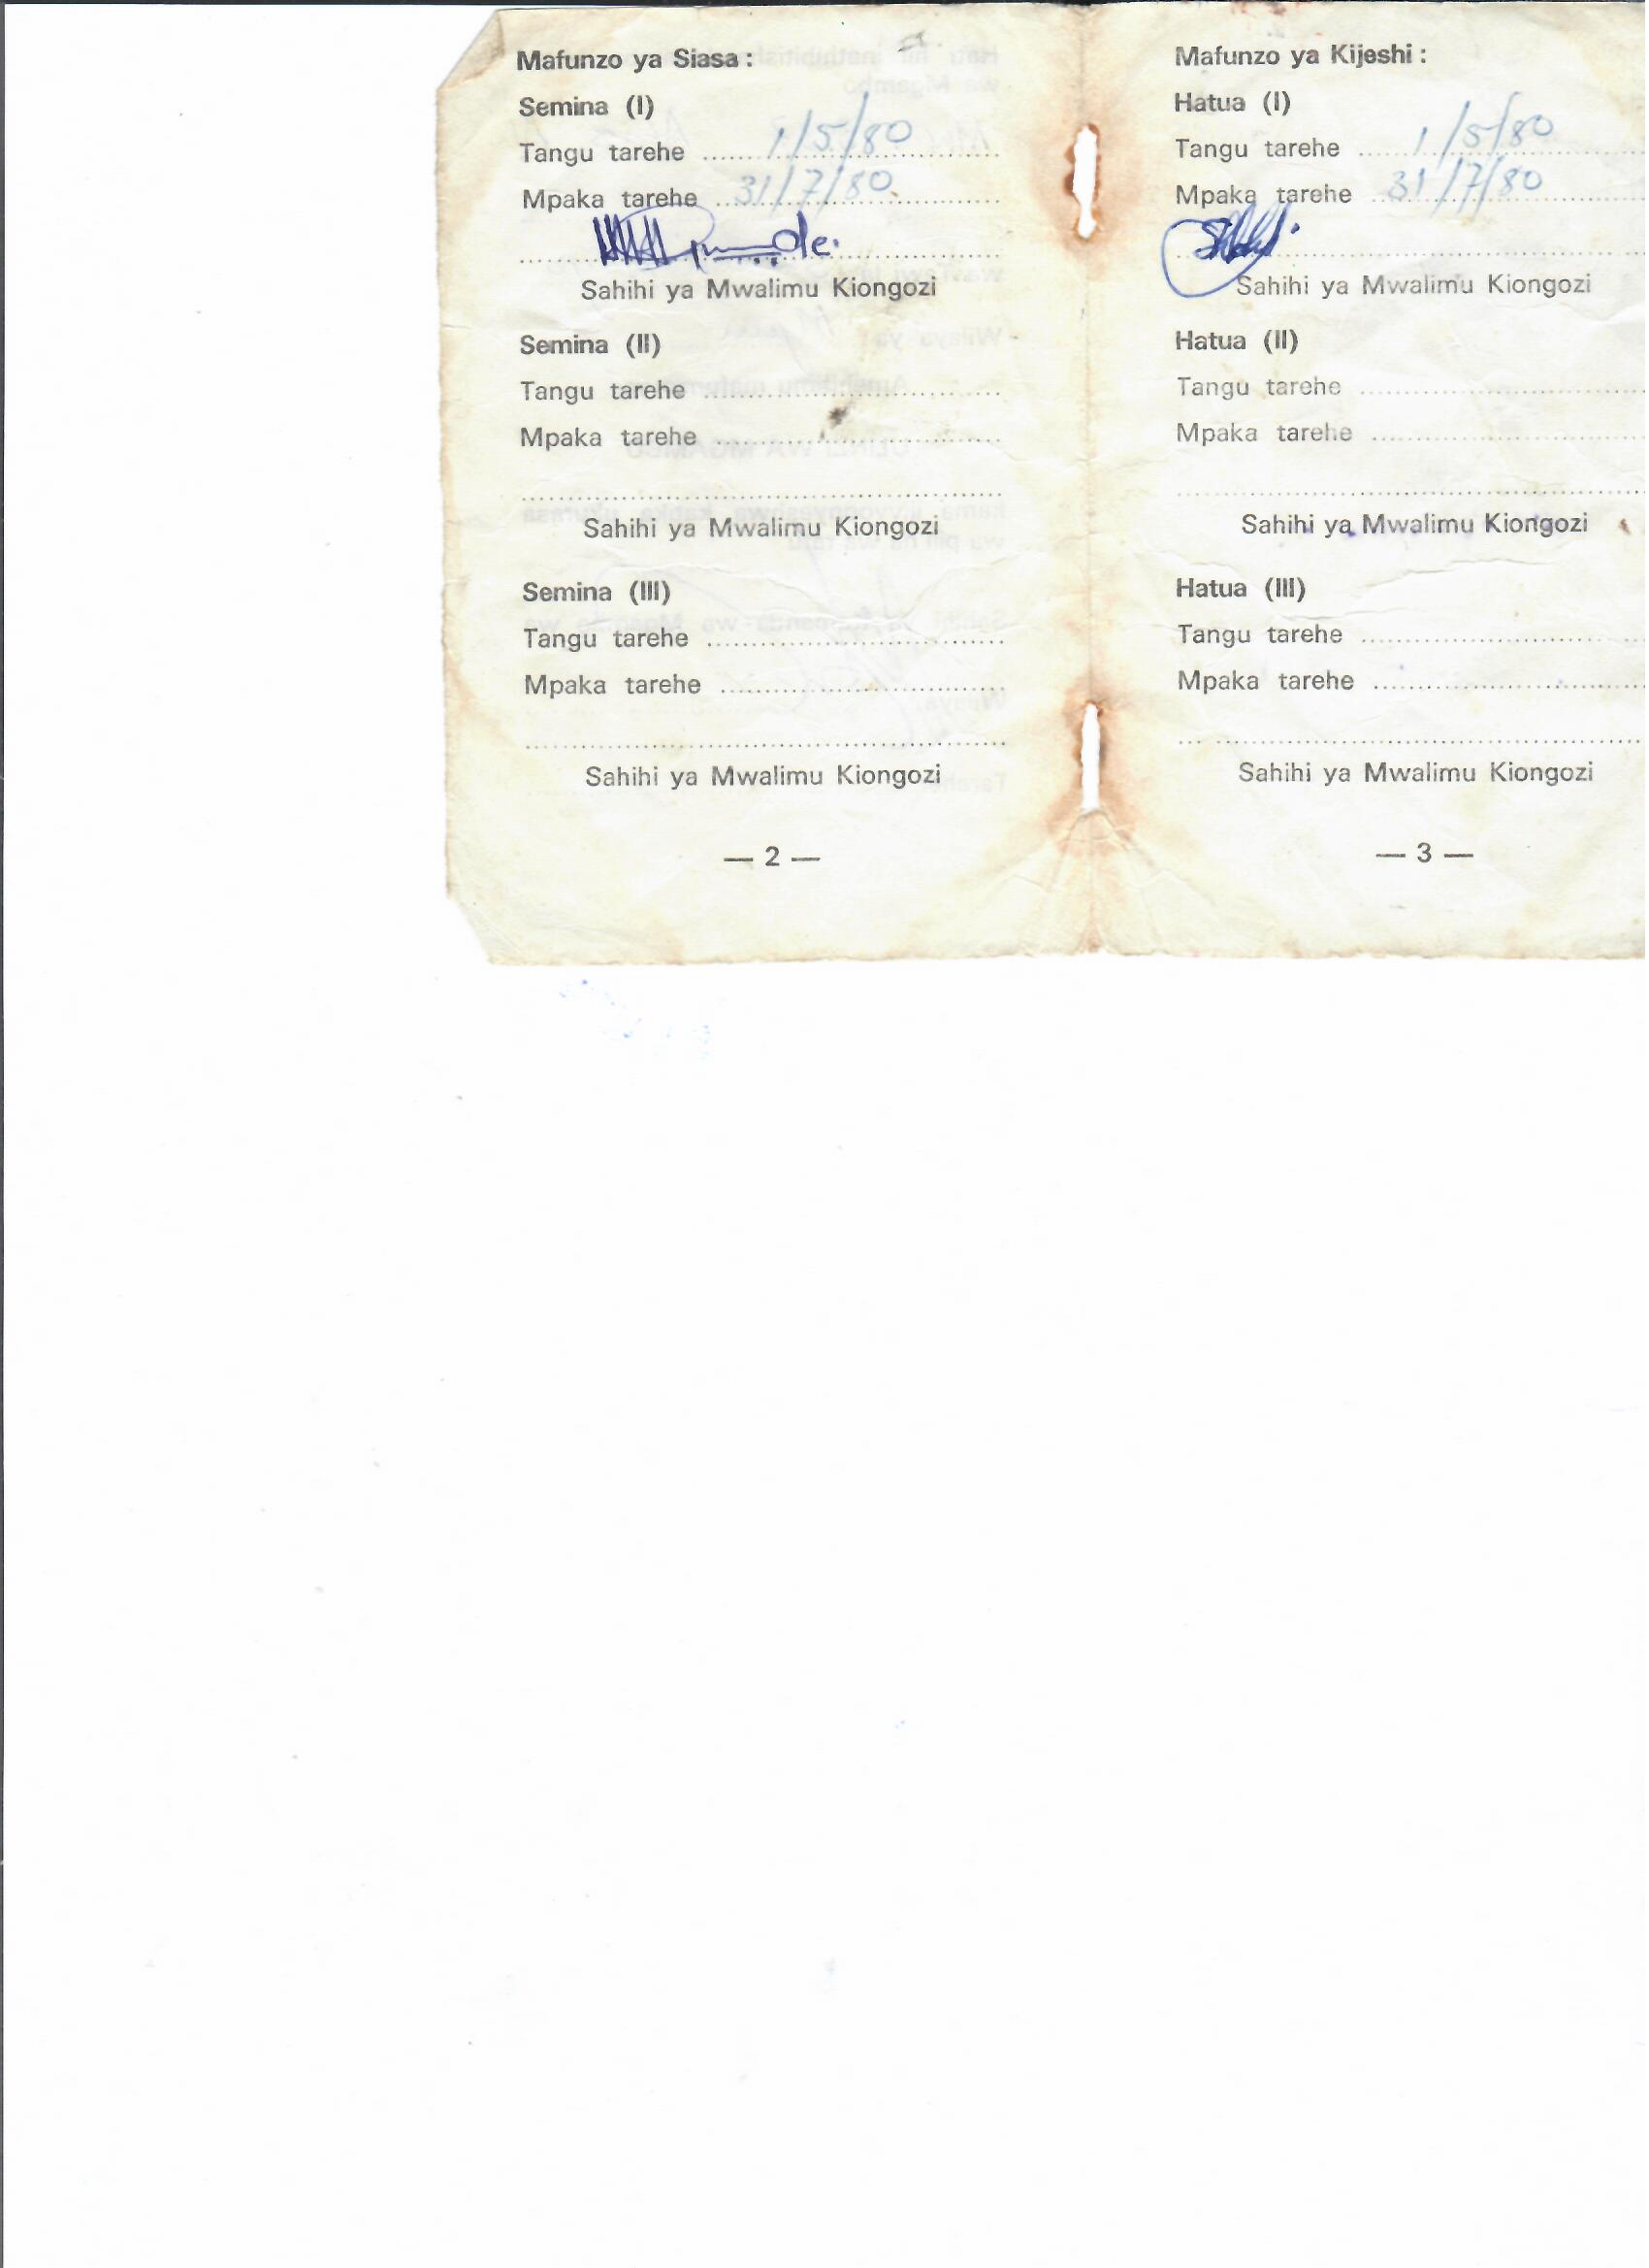 Mafunzo ya Siasa :
Semina (I)
Tangu tarehe ........ 1/5/80
Mpaka tarehe 31/7/80
Sahihi ya Mwalimu Kiongozi
Semina (II)
Tangu tarehe ........................
Mpaka tarehe ........................
Sahihi ya Mwalimu Kiongozi
Semina (III)
Tangu tarehe ........................
Mpaka tarehe ........................
Sahihi ya Mwalimu Kiongozi
— 2 —
Mafunzo ya Kijeshi :
Hatua (I)
Tangu tarehe ........ 1/5/80
Mpaka tarehe 31/7/80
Sahihi ya Mwalimu Kiongozi
Hatua (II)
Tangu tarehe ........................
Mpaka tarehe ........................
Sahihi ya Mwalimu Kiongozi
Hatua (III)
Tangu tarehe ........................
Mpaka tarehe ........................
Sahihi ya Mwalimu Kiongozi
— 3 —